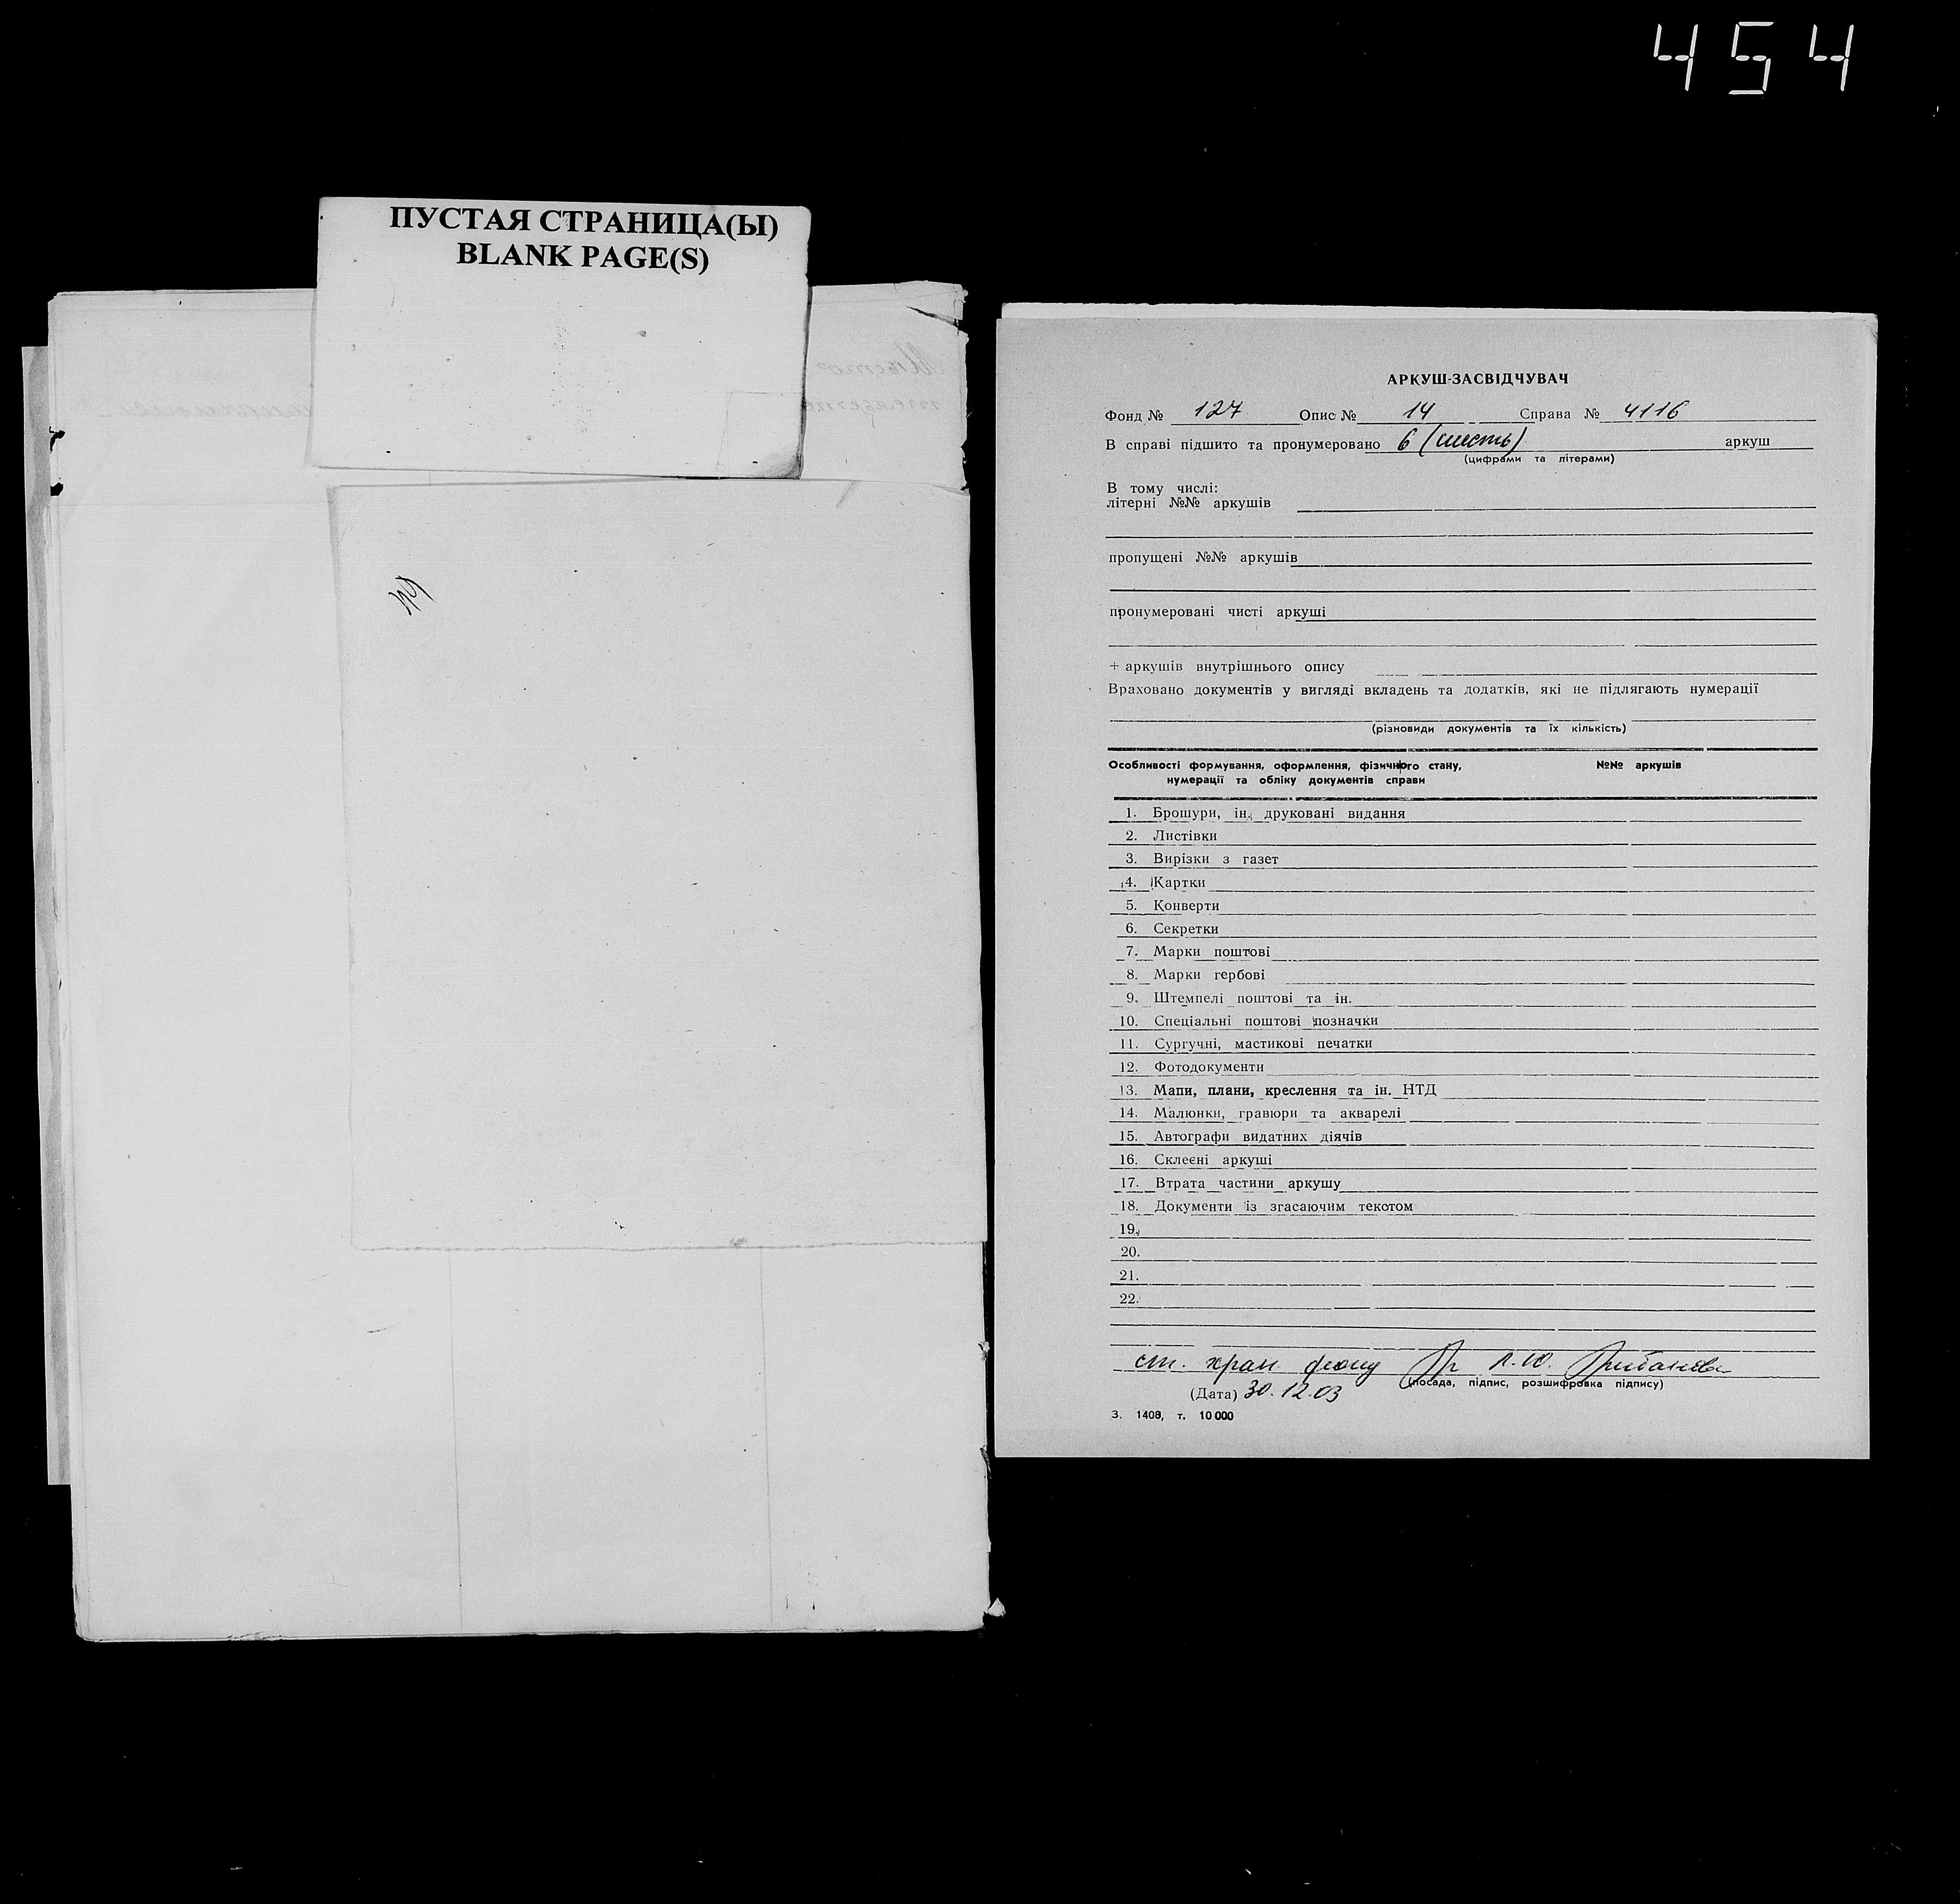 454
ПУСТАЯ СТРАНИЦА(Ы)
BLANK PAGE(S)
АРКУШ-ЗАСВІДЧУВАЧ
Фонд № 127 Опис № 14 Справа № 4116
В справі підшито та пронумеровано 6 (шесть) аркуш
(цифрами та літерами)
В тому числі:
літерні №№ аркушів
пропущені №№ аркушів
пронумеровані чисті аркуші
+ аркушів внутрішнього опису
Враховано документів у вигляді вкладень та додатків, які не підлягають нумерації
(різновиди документів та їх кількість)
Особливості формування, оформлення, фізичного стану, №№ аркушів
нумерації та обліку документів справи
1. Брошури, ін. друковані видання
2. Листівки
3. Вирізки з газет
4. Картки
5. Конверти
6. Секретки
7. Марки поштові
8. Марки гербові
9. Штемпелі поштові та ін.
10. Спеціальні поштові позначки
11. Сургучні, мастикові печатки
12. Фотодокументи
13. Мапи, плани, креслення та ін. НТД
14. Малюнки, гравюри та акварелі
15. Автографи видатних діячів
16. Склеєні аркуші
17. Втрата частини аркушу
18. Документи із згасаючим текстом
19.
20.
21.
22.
ст. хран фонду Л.Ю.
(посада, підпис, розшифровка підпису)
(Дата) 30.12.03
З. 1408, т. 10 000